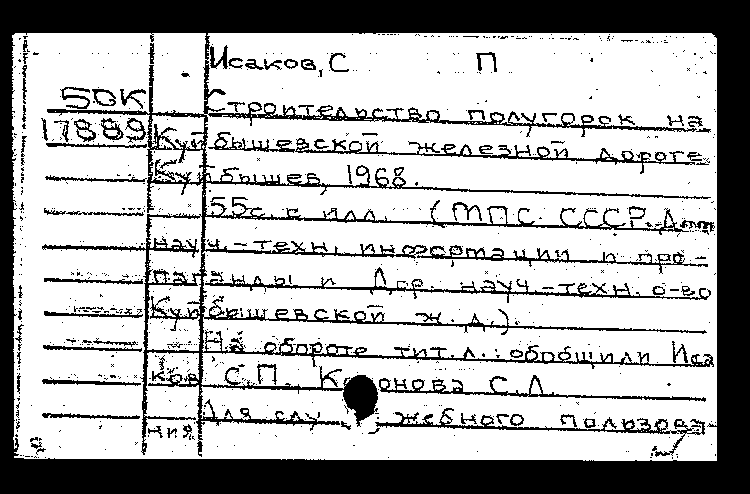 Исаков, С П
50К Строительство полугорок на
17889 Куйбышевской железной дороге
Куйбышев, 1968.
55с. с илл. (МПС СССР.
науч.-техн. информации и про-
паганды и Дор. науч.-техн. о-во
Куйбышевской ж.д.).
На обороте тит.л.: обобщили Иса
ков С.П., К онова С.Л.
Для слу жебного пользова
ния